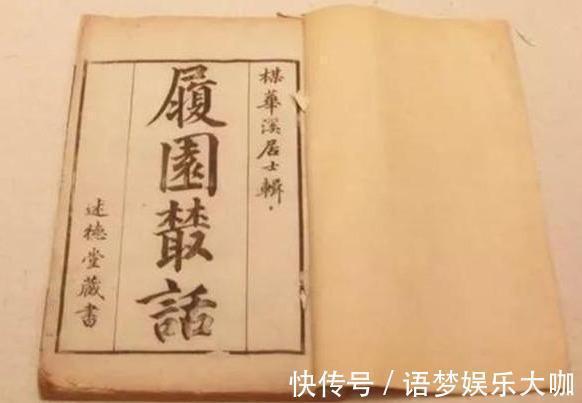 楳華溪居士輯
履園叢話
述德堂藏書
快传号/语梦娱乐大咖